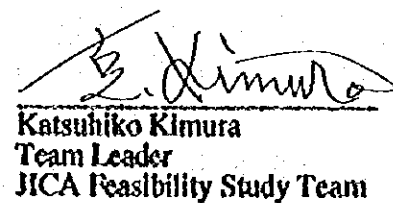 Kimura
Katsuhiko Kimura
Team Leader
JICA Feasibility Study Team